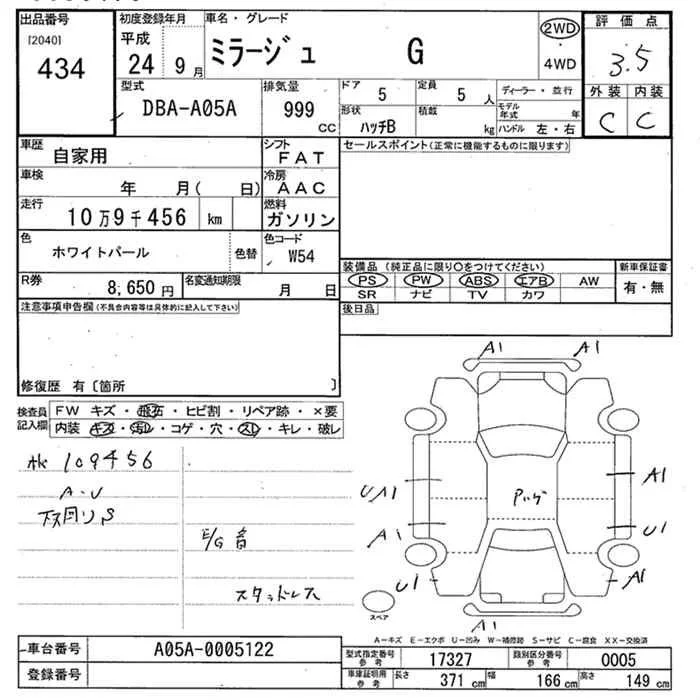 出品番号
[2040]
434
初度登録年月
平成
24 9月
車名・グレード
ミラージュ G
2WD
・
4WD
評価点
3.5
外装 内装
C C
型式
DBA-A05A
排気量
999
CC
ドア
5
定員
5 人
形状
ハッチB
積載
kg
ディーラー・並行
モデル年式 年
ハンドル 左・右
車歴
自家用
シフト
FAT
車検
年 月( 日)
冷房
AAC
走行
10万9千456 km
燃料
ガソリン
色
ホワイトパール
色替
色コード
W54
R券
8,650円
名変通知期限
月 日
セールスポイント(正常に機能するものに限ります)
装備品(純正品に限り○をつけてください)
PS PW ABS エアB AW
SR ナビ TV カワ
新車保証書
有・無
後日品
注意事項申告欄(不具合内容等は具体的に記入して下さい)
修復歴 有〔箇所 〕
検査員記入欄
FW キズ・飛石・ヒビ割・リペア跡・×要
内装 キズ・汚レ・コゲ・穴・スレ・キレ・破レ
109456
A・U
下回りS
E/G音
スタッドレス
A1 A1
UA1 A1
A1 U1
U1 A1
A1
スペア
A-キズ E-エクボ U-凹み W-補修跡 S-サビ C-腐食 XX-交換済
車台番号 A05A-0005122
登録番号
型式指定番号参考 17327
類別区分番号参考 0005
車庫証明用参考 長さ 371 cm 幅 166 cm 高さ 149 cm